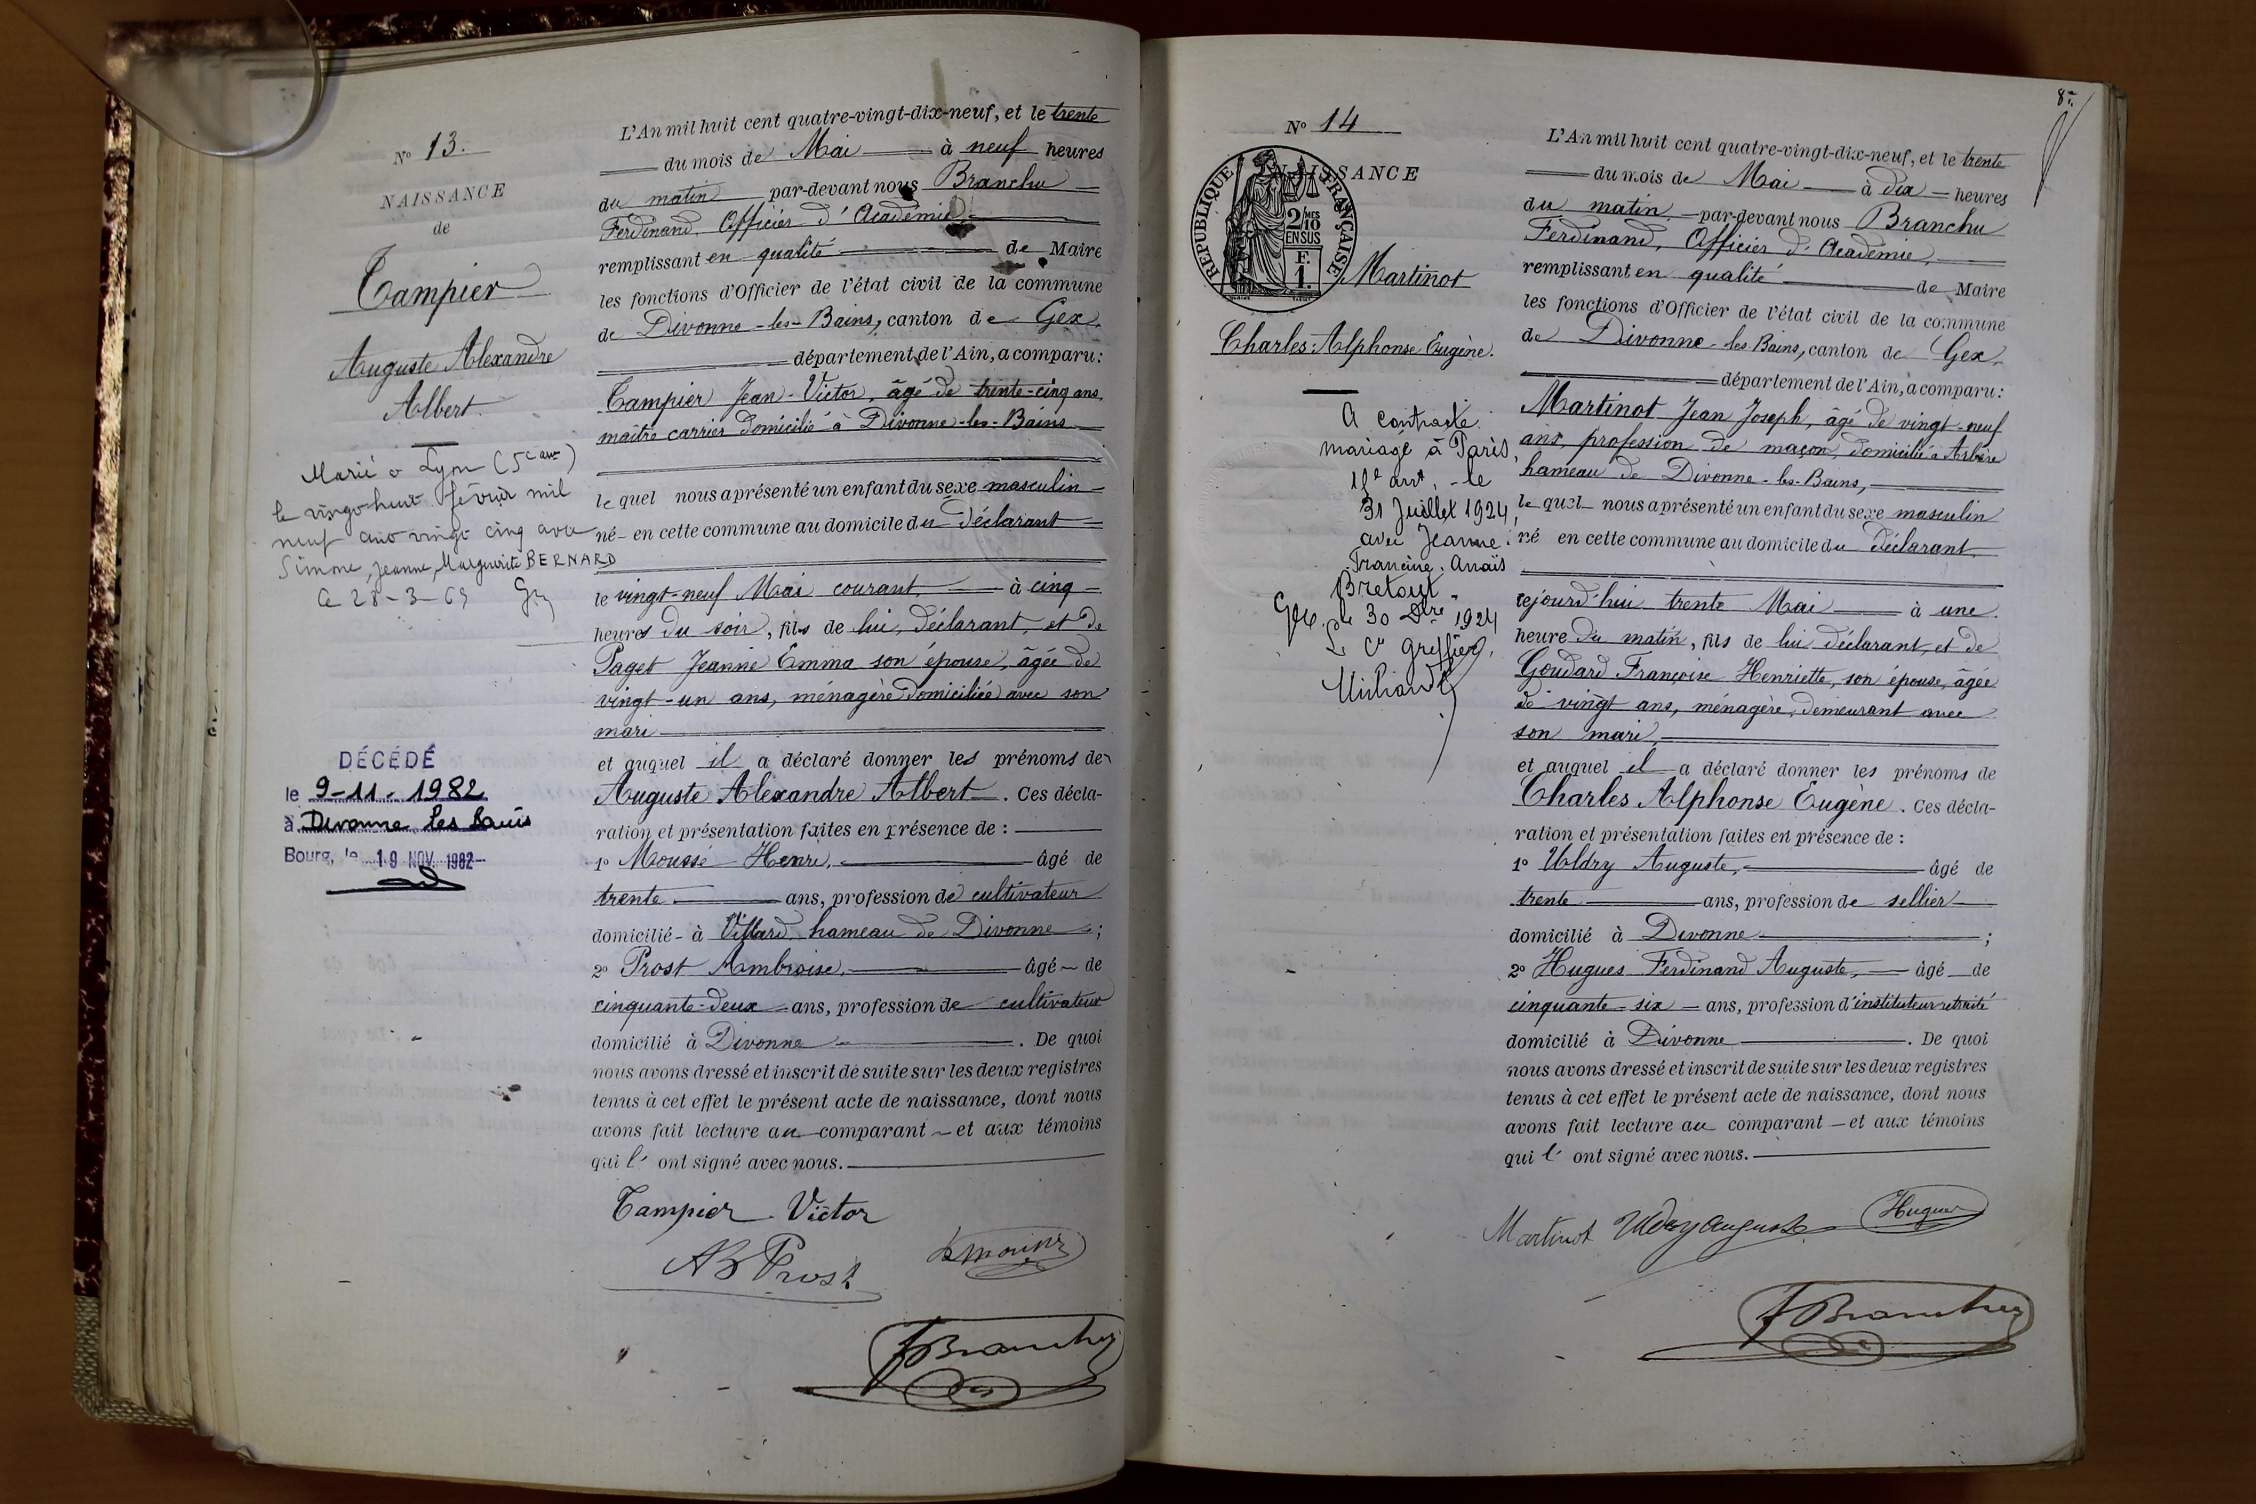 N° 13.
NAISSANCE
de
Tampier
Auguste Alexandre
Albert.
Marié à Lyon (5e arr)
le vingt-huit février mil
neuf cent vingt cinq avec
Simone, Jeanne, Marguerite BERNARD
le 28-3-69
DÉCÉDÉ
le 9-11-1982
à Divonne les bains
Bourg, le 19 NOV. 1982
L'An mil huit cent quatre-vingt-dix-neuf, et le trente
du mois de Mai à neuf heures
du matin par-devant nous Branchu
Ferdinand, Officier d'Académie,
remplissant en qualité de Maire
les fonctions d'Officier de l'état civil de la commune
de Divonne-les-Bains, canton de Gex,
département de l'Ain, a comparu :
Tampier Jean-Victor, âgé de trente-cinq ans,
maître carrier domicilié à Divonne-les-Bains
le quel nous a présenté un enfant du sexe masculin
né en cette commune au domicile du déclarant
le vingt-neuf Mai courant, à cinq
heures du soir, fils de lui, déclarant, et de
Paget Jeanne Emma son épouse, âgée de
vingt-un ans, ménagère domiciliée avec son
mari
et auquel il a déclaré donner les prénoms de
Auguste Alexandre Albert. Ces décla-
ration et présentation faites en présence de :
1° Moussé Henri, âgé de
trente ans, profession de cultivateur
domicilié à Villard, hameau de Divonne ;
2° Prost Ambroise, âgé de
cinquante-deux ans, profession de cultivateur
domicilié à Divonne. De quoi
nous avons dressé et inscrit de suite sur les deux registres
tenus à cet effet le présent acte de naissance, dont nous
avons fait lecture au comparant et aux témoins
qui l' ont signé avec nous.
Tampier Victor
AB Prost
FBranchu
8
N° 14
NAISSANCE
RÉPUBLIQUE FRANÇAISE
2/10 MES
EN SUS
F.
1.
Martinot
Charles-Alphonse Eugène.
A contracté
mariage à Paris,
le
31 Juillet 1924,
avec Jeanne
Francine, Anaïs
Bretout
Gex, le 30 Dbre 1924
Le Cis greffier,
L'An mil huit cent quatre-vingt-dix-neuf, et le trente
du mois de Mai à dix heures
du matin, par-devant nous Branchu
Ferdinand, Officier d'Académie,
remplissant en qualité de Maire
les fonctions d'Officier de l'état civil de la commune
de Divonne-les-Bains, canton de Gex,
département de l'Ain, a comparu :
Martinot Jean Joseph, âgé de vingt-neuf
ans, profession de maçon, domicilié à Arbère
hameau de Divonne-les-Bains,
le quel nous a présenté un enfant du sexe masculin
né en cette commune au domicile du déclarant.
cejourd'hui trente Mai à une
heure du matin, fils de lui déclarant, et de
Goudard Françoise Henriette, son épouse, âgée
de vingt ans, ménagère, demeurant avec
son mari,
et auquel il a déclaré donner les prénoms de
Charles Alphonse Eugène. Ces décla-
ration et présentation faites en présence de :
1° Uldry Auguste, âgé de
trente ans, profession de sellier
domicilié à Divonne ;
2° Hugues Ferdinand Auguste, âgé de
cinquante-six ans, profession d'instituteur retraité
domicilié à Divonne. De quoi
nous avons dressé et inscrit de suite sur les deux registres
tenus à cet effet le présent acte de naissance, dont nous
avons fait lecture au comparant et aux témoins
qui l' ont signé avec nous.
Martinot Uldry Auguste Hugues
FBranchu